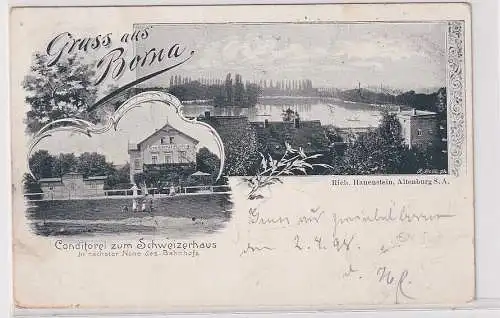 Gruss aus
Borna.
Rich. Hauenstein, Altenburg S. A.
Conditorei zum Schweizerhaus
In nächster Nähe des Bahnhofs
Gruss auf
2. 4. 98.
d.